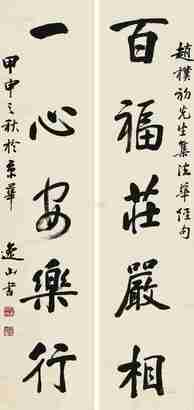 百福莊嚴相
趙樸初先生集法華經句
一心安樂行
甲申之秋於京華
逸山書